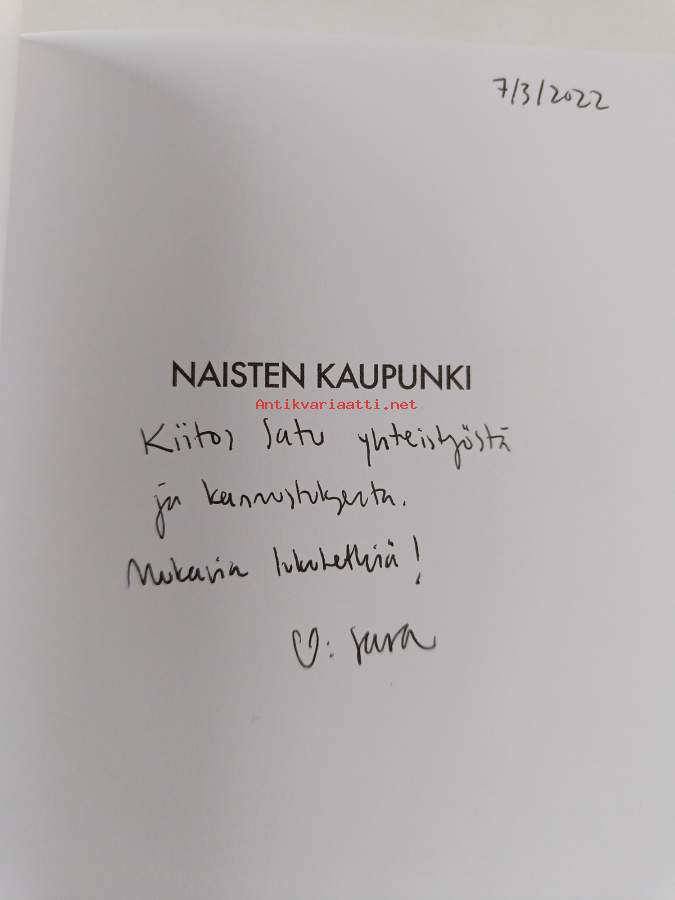 7/3/2022
NAISTEN KAUPUNKI
Antikvariaatti.net
Kiitos Satu yhteistyöstä
ja kannustuksesta.
Mukavia lukuhetkiä!
♡: Sara